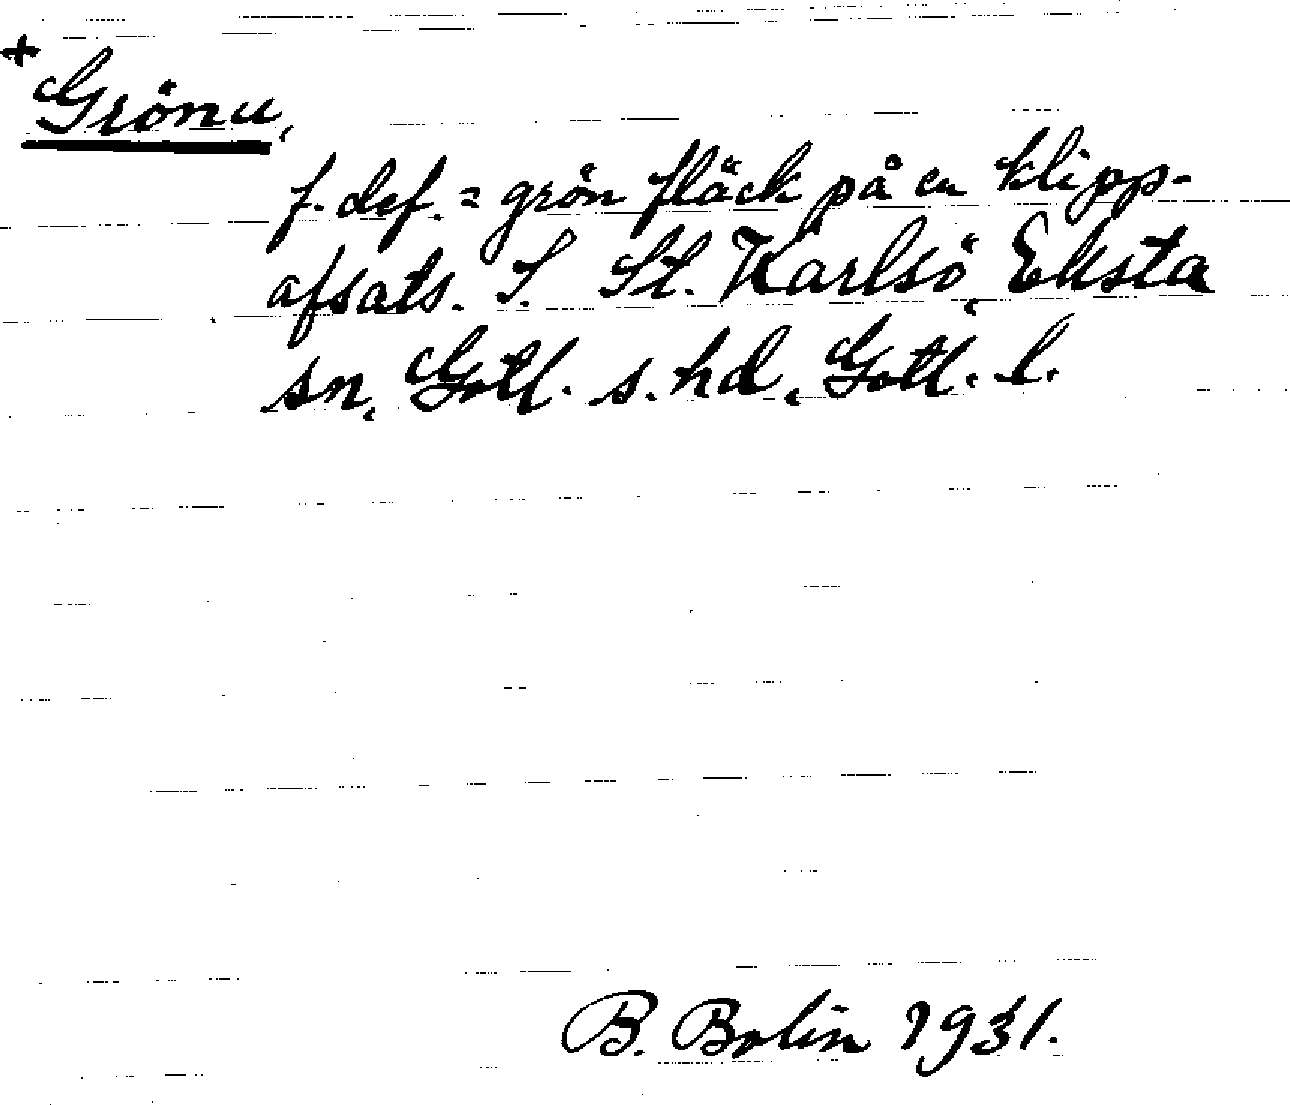 +
Grönu,
f. def. = grön fläck på en klipp-
afsats. I. St. Karlsö, Eksta
sn, Gotl. s. hd, Gotl. l.
B. Bolin 1931.